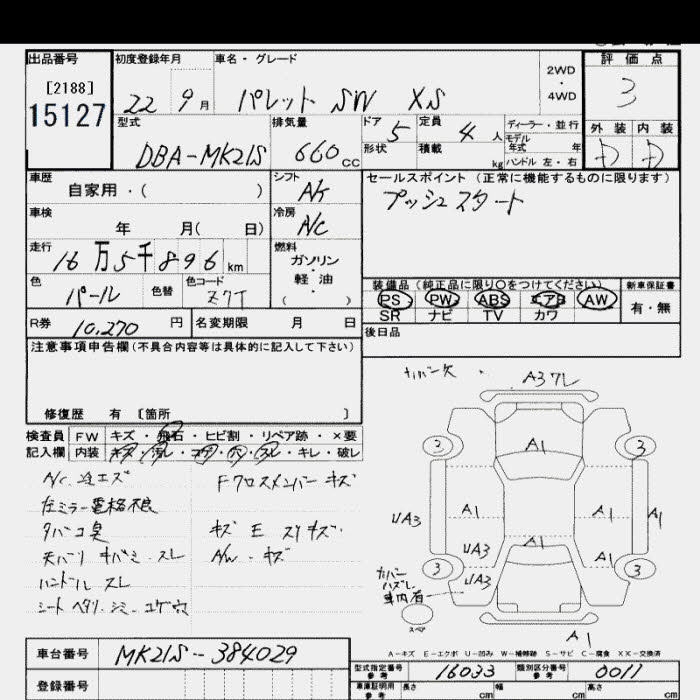 出品番号 初度登録年月 車名・グレード 2WD・4WD 評価点
[2188]
15127
22 9月 パレット SW XS 3
型式 排気量 ドア 5 定員 4 人 ディーラー・並行 外装 内装
DBA-MK21S 660cc 形状 積載 kg モデル年式 年 ハンドル 左・右 D D
車歴 シフト セールスポイント (正常に機能するものに限ります)
自家用・( ) プッシュスタート
車検 冷房
年 月( 日) A/C
走行 燃料
16万5千896km ガソリン・軽油・( )
色 パール 色替 色コード Z7T
装備品 (純正品に限り〇をつけてください) 新車保証書
PS PW ABS エアB AW 有・無
SR ナビ TV カワ
R券 10,270 円 名変期限 月 日 後日品
注意事項申告欄 (不具合内容等は具体的に記入して下さい)
修復歴 有 〔箇所 〕
検査員 FW キズ・飛石・ヒビ割・リペア跡・×要
記入欄 内装 キズ・汚レ・コゲ・穴・スレ・キレ・破レ
A/C 冷エズ Fクロスメンバー キズ
左ミラー電格不良
タバコ臭 キズ E スリキズ・
天バリ キバミ・スレ A/W・キズ
ハンドル スレ
シート ヘタリ・シミ・コゲ穴
ナンバー欠・ A3ワレ
3 A1 3
UA3 A1 A1 A1
UA3 A1
3 UA3 3
カバーハズレ車内有
スペア
A1
A-キズ E-エクボ U-凹み W-補修跡 S-サビ C-腐食 XX-交換済
車台番号 MK21S-384029
型式指定番号 参考 16033 類別区分番号 参考 0011
登録番号 車庫証明用 参考 長さ cm 幅 cm 高さ cm